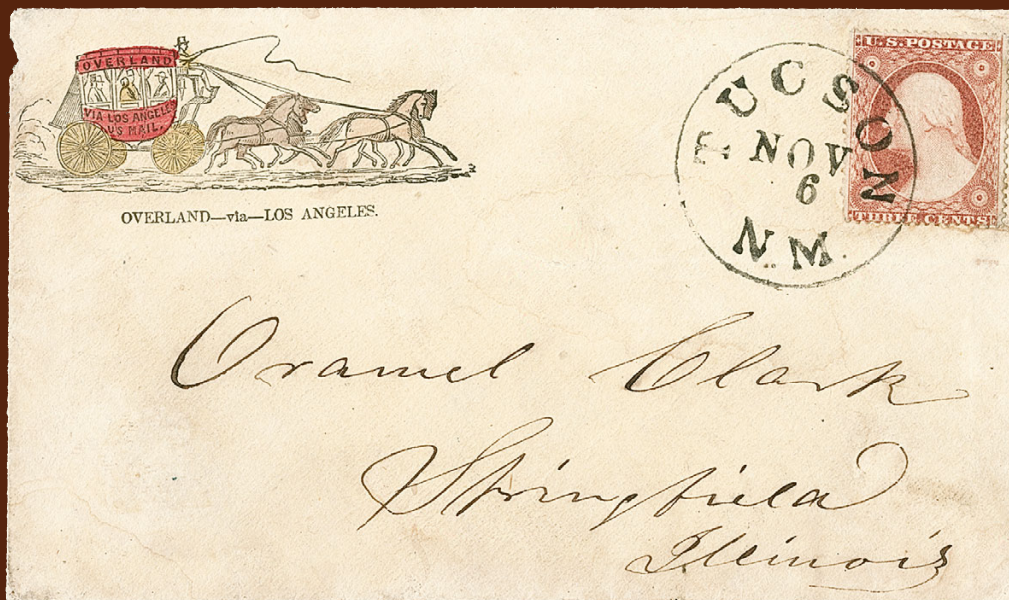 OVERLAND
VIA LOS ANGELES
U S MAIL.
OVERLAND—via—LOS ANGELES.
TUCSON
NOV
6
N.M.
U.S. POSTAGE
THREE CENTS
Oramel Clark
Springfield
Illinois